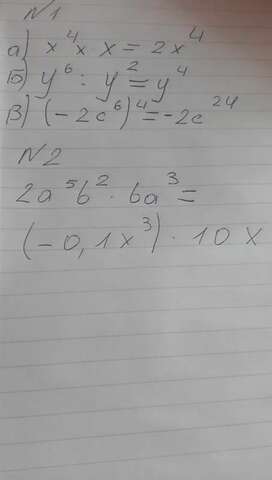 N1
а) x⁴ x x = 2x⁴
Б) y⁶ : y² = y⁴
В) (-2c⁶)⁴ = -2c²⁴
N2
2a⁵b² · ba³ =
(-0,1x³) · 10x